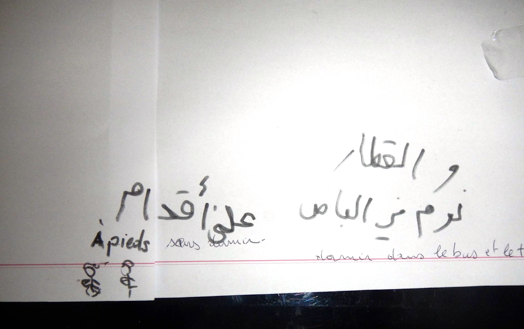 و القطار
نوم في الباص
على أقدام
À pieds sans dormir
dormir dans le bus et le t